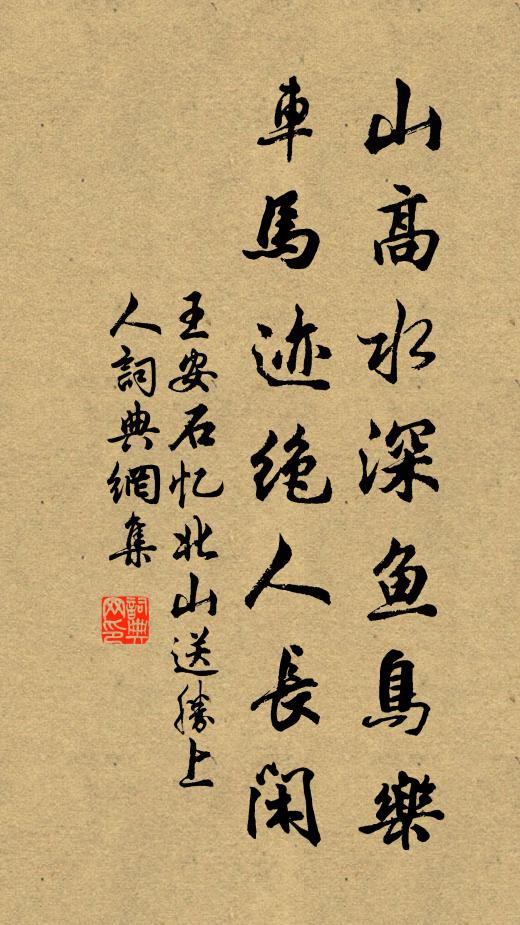 山高水深鱼鳥樂
車馬迹绝人長閑
王安石忆北山送勝上
人詞典網集
詞典
网印